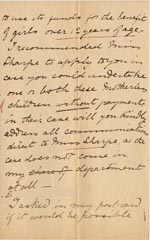 to use its funds for the benefit
of girls over 12 years of age.
I recommended Miss
Sharpe to apply to you in
case you could undertake
one or both these motherless
children without payments
in their case will you kindly
address all communication
direct to Miss Sharpe as the
case does not come in
my department
at all —
I asked in my post card
if it would be possible